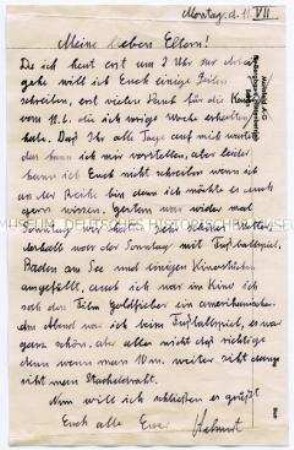 Montag. d. 11. VII
Meine lieben Eltern!
Da ich heut erst um 2 Uhr zur Arbeit
gehe will ich Euch einige Zeilen
schreiben, erst vielen Dank für die
vom 11.6. die ich vorige Woche erhalten
habe. Daß Ihr alle Tage auf mich wartet
das kann ich mir vorstellen, aber leider
kann ich Euch nicht schreiben wenn ich
an der Reihe bin denn ich möchte es auch
gern wissen. Gestern war wieder mal
Sonntag wir hatten sehr schönes Wetter
deshalb war der Sonntag mit Fußballspiel,
Baden am See und einigen
angefüllt, auch ich war im Kino ich
sah den Film Goldfieber ein amerikanischer.
Am Abend war ich beim Fußballspiel, es war
ganz schön, aber alles nicht das richtige
denn wenn man 10 m. weiter sieht
sieht man Stacheldraht.
Nun will ich schließen es grüßt
Euch alle Euer Helmut
DEUTSCHES HISTORISCHES